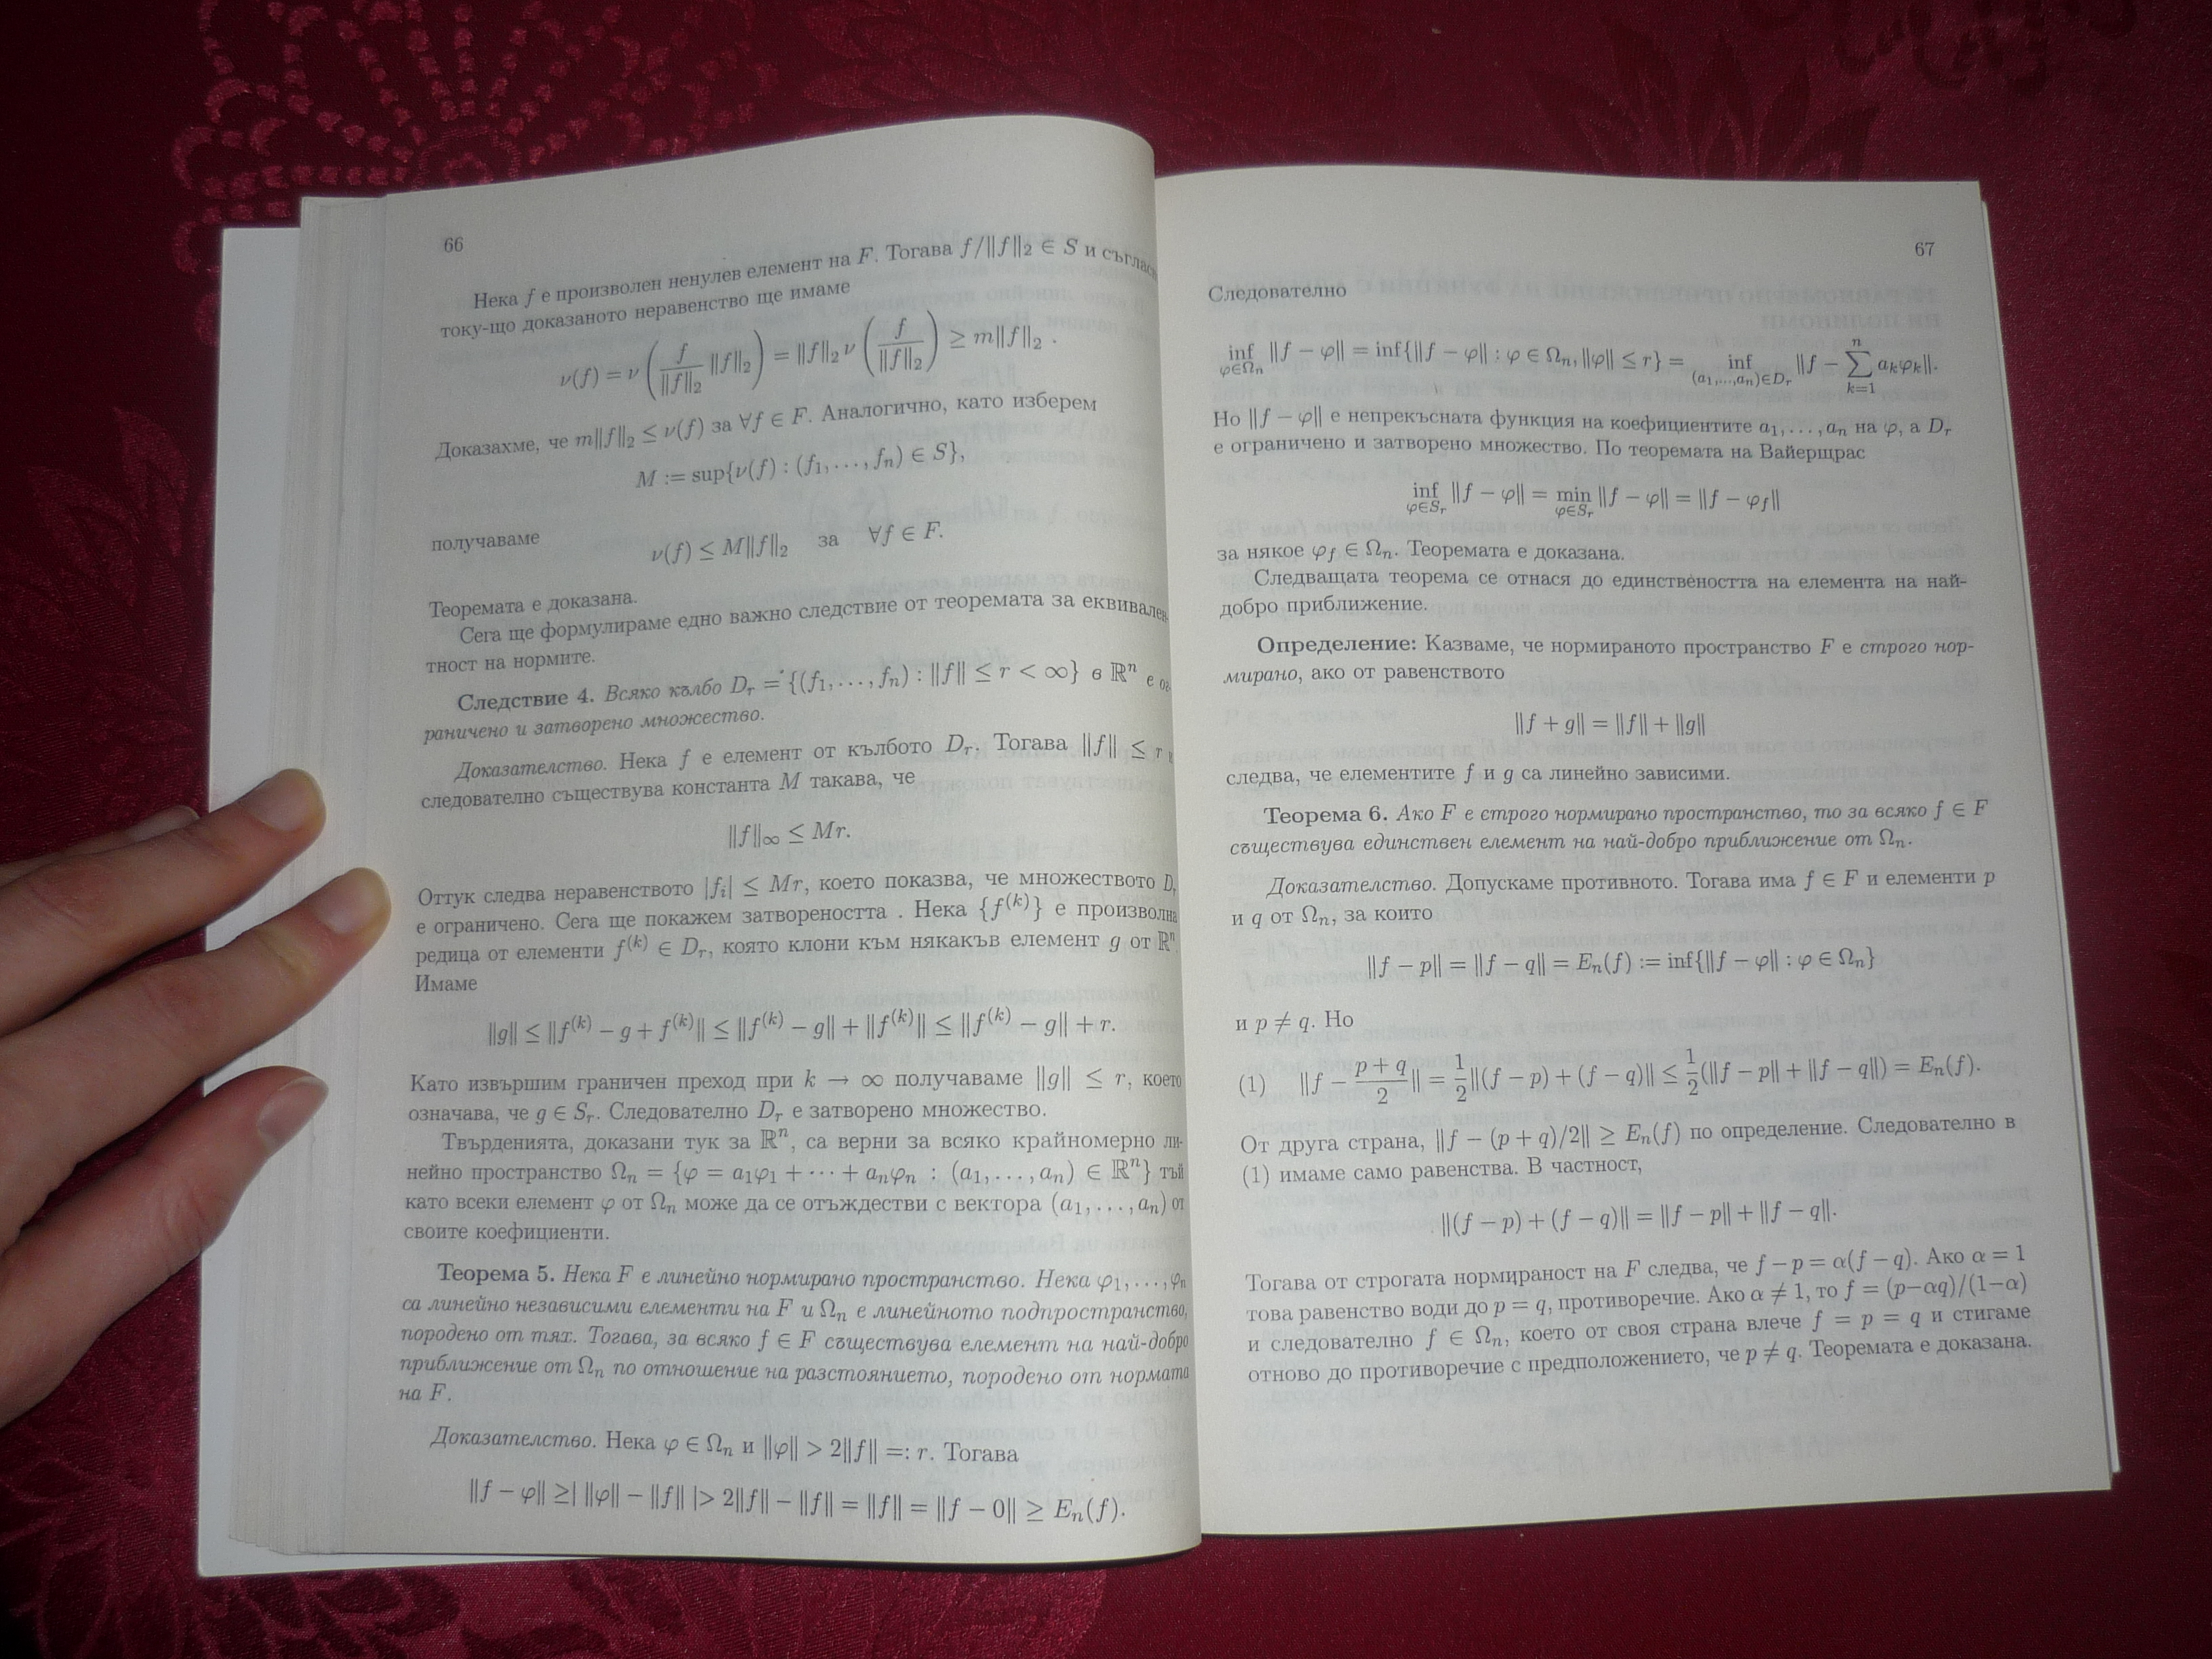 66
Нека f е произволен ненулев елемент на F. Тогава f/‖f‖₂ ∈ S и
току-що доказаното неравенство ще имаме
ν(f) = ν(f/‖f‖₂ ‖f‖₂) = ‖f‖₂ν(f/‖f‖₂) ≥ m‖f‖₂ .
Доказахме, че m‖f‖₂ ≤ ν(f) за ∀f ∈ F. Аналогично, като изберем
M := sup{ν(f) : (f₁, …, fₙ) ∈ S},
получаваме
ν(f) ≤ M‖f‖₂ за ∀f ∈ F.
Теоремата е доказана.
Сега ще формулираме едно важно следствие от теоремата за еквивален-
тност на нормите.
Следствие 4. Всяко кълбо Dᵣ = {(f₁, …, fₙ) : ‖f‖ ≤ r < ∞} в ℝⁿ е ог-
раничено и затворено множество.
Доказателство. Нека f е елемент от кълбото Dᵣ. Тогава ‖f‖ ≤ r и
следователно съществува константа M такава, че
‖f‖∞ ≤ Mr.
Оттук следва неравенството |fᵢ| ≤ Mr, което показва, че множеството Dᵣ
е ограничено. Сега ще покажем затвореността . Нека {f⁽ᵏ⁾} е произволна
редица от елементи f⁽ᵏ⁾ ∈ Dᵣ, която клони към някакъв елемент g от ℝⁿ.
Имаме
‖g‖ ≤ ‖f⁽ᵏ⁾ − g + f⁽ᵏ⁾‖ ≤ ‖f⁽ᵏ⁾ − g‖ + ‖f⁽ᵏ⁾‖ ≤ ‖f⁽ᵏ⁾ − g‖ + r.
Като извършим граничен преход при k → ∞ получаваме ‖g‖ ≤ r, което
означава, че g ∈ Sᵣ. Следователно Dᵣ е затворено множество.
Твърденията, доказани тук за ℝⁿ, са верни за всяко крайномерно ли-
нейно пространство Ωₙ = {φ = a₁φ₁ + ⋯ + aₙφₙ : (a₁, …, aₙ) ∈ ℝⁿ} тъй
като всеки елемент φ от Ωₙ може да се отъждестви с вектора (a₁, …, aₙ) от
своите коефициенти.
Теорема 5. Нека F е линейно нормирано пространство. Нека φ₁, …, φₙ
са линейно независими елементи на F и Ωₙ е линейното подпространство,
породено от тях. Тогава, за всяко f ∈ F съществува елемент на най-добро
приближение от Ωₙ по отношение на разстоянието, породено от нормата
на F.
Доказателство. Нека φ ∈ Ωₙ и ‖φ‖ > 2‖f‖ =: r. Тогава
‖f − φ‖ ≥| ‖φ‖ − ‖f‖ |> 2‖f‖ − ‖f‖ = ‖f‖ = ‖f − 0‖ ≥ Eₙ(f).
67
Следователно
inf_{φ∈Ωₙ} ‖f − φ‖ = inf{‖f − φ‖ : φ ∈ Ωₙ, ‖φ‖ ≤ r} = inf_{(a₁,…,aₙ)∈Dᵣ} ‖f − ∑_{k=1}^{n} aₖφₖ‖.
Но ‖f − φ‖ е непрекъсната функция на коефициентите a₁, …, aₙ на φ, а Dᵣ
е ограничено и затворено множество. По теоремата на Вайерщрас
inf_{φ∈Sᵣ} ‖f − φ‖ = min_{φ∈Sᵣ} ‖f − φ‖ = ‖f − φ_f‖
за някое φ_f ∈ Ωₙ. Теоремата е доказана.
Следващата теорема се отнася до единствеността на елемента на най-
добро приближение.
Определение: Казваме, че нормираното пространство F е строго нор-
мирано, ако от равенството
‖f + g‖ = ‖f‖ + ‖g‖
следва, че елементите f и g са линейно зависими.
Теорема 6. Ако F е строго нормирано пространство, то за всяко f ∈ F
съществува единствен елемент на най-добро приближение от Ωₙ.
Доказателство. Допускаме противното. Тогава има f ∈ F и елементи p
и q от Ωₙ, за които
‖f − p‖ = ‖f − q‖ = Eₙ(f) := inf{‖f − φ‖ : φ ∈ Ωₙ}
и p ≠ q. Но
(1) ‖f − (p + q)/2‖ = 1/2‖(f − p) + (f − q)‖ ≤ 1/2(‖f − p‖ + ‖f − q‖) = Eₙ(f).
От друга страна, ‖f − (p + q)/2‖ ≥ Eₙ(f) по определение. Следователно в
(1) имаме само равенства. В частност,
‖(f − p) + (f − q)‖ = ‖f − p‖ + ‖f − q‖.
Тогава от строгата нормираност на F следва, че f − p = α(f − q). Ако α = 1
това равенство води до p = q, противоречие. Ако α ≠ 1, то f = (p−αq)/(1−α)
и следователно f ∈ Ωₙ, което от своя страна влече f = p = q и стигаме
отново до противоречие с предположението, че p ≠ q. Теоремата е доказана.